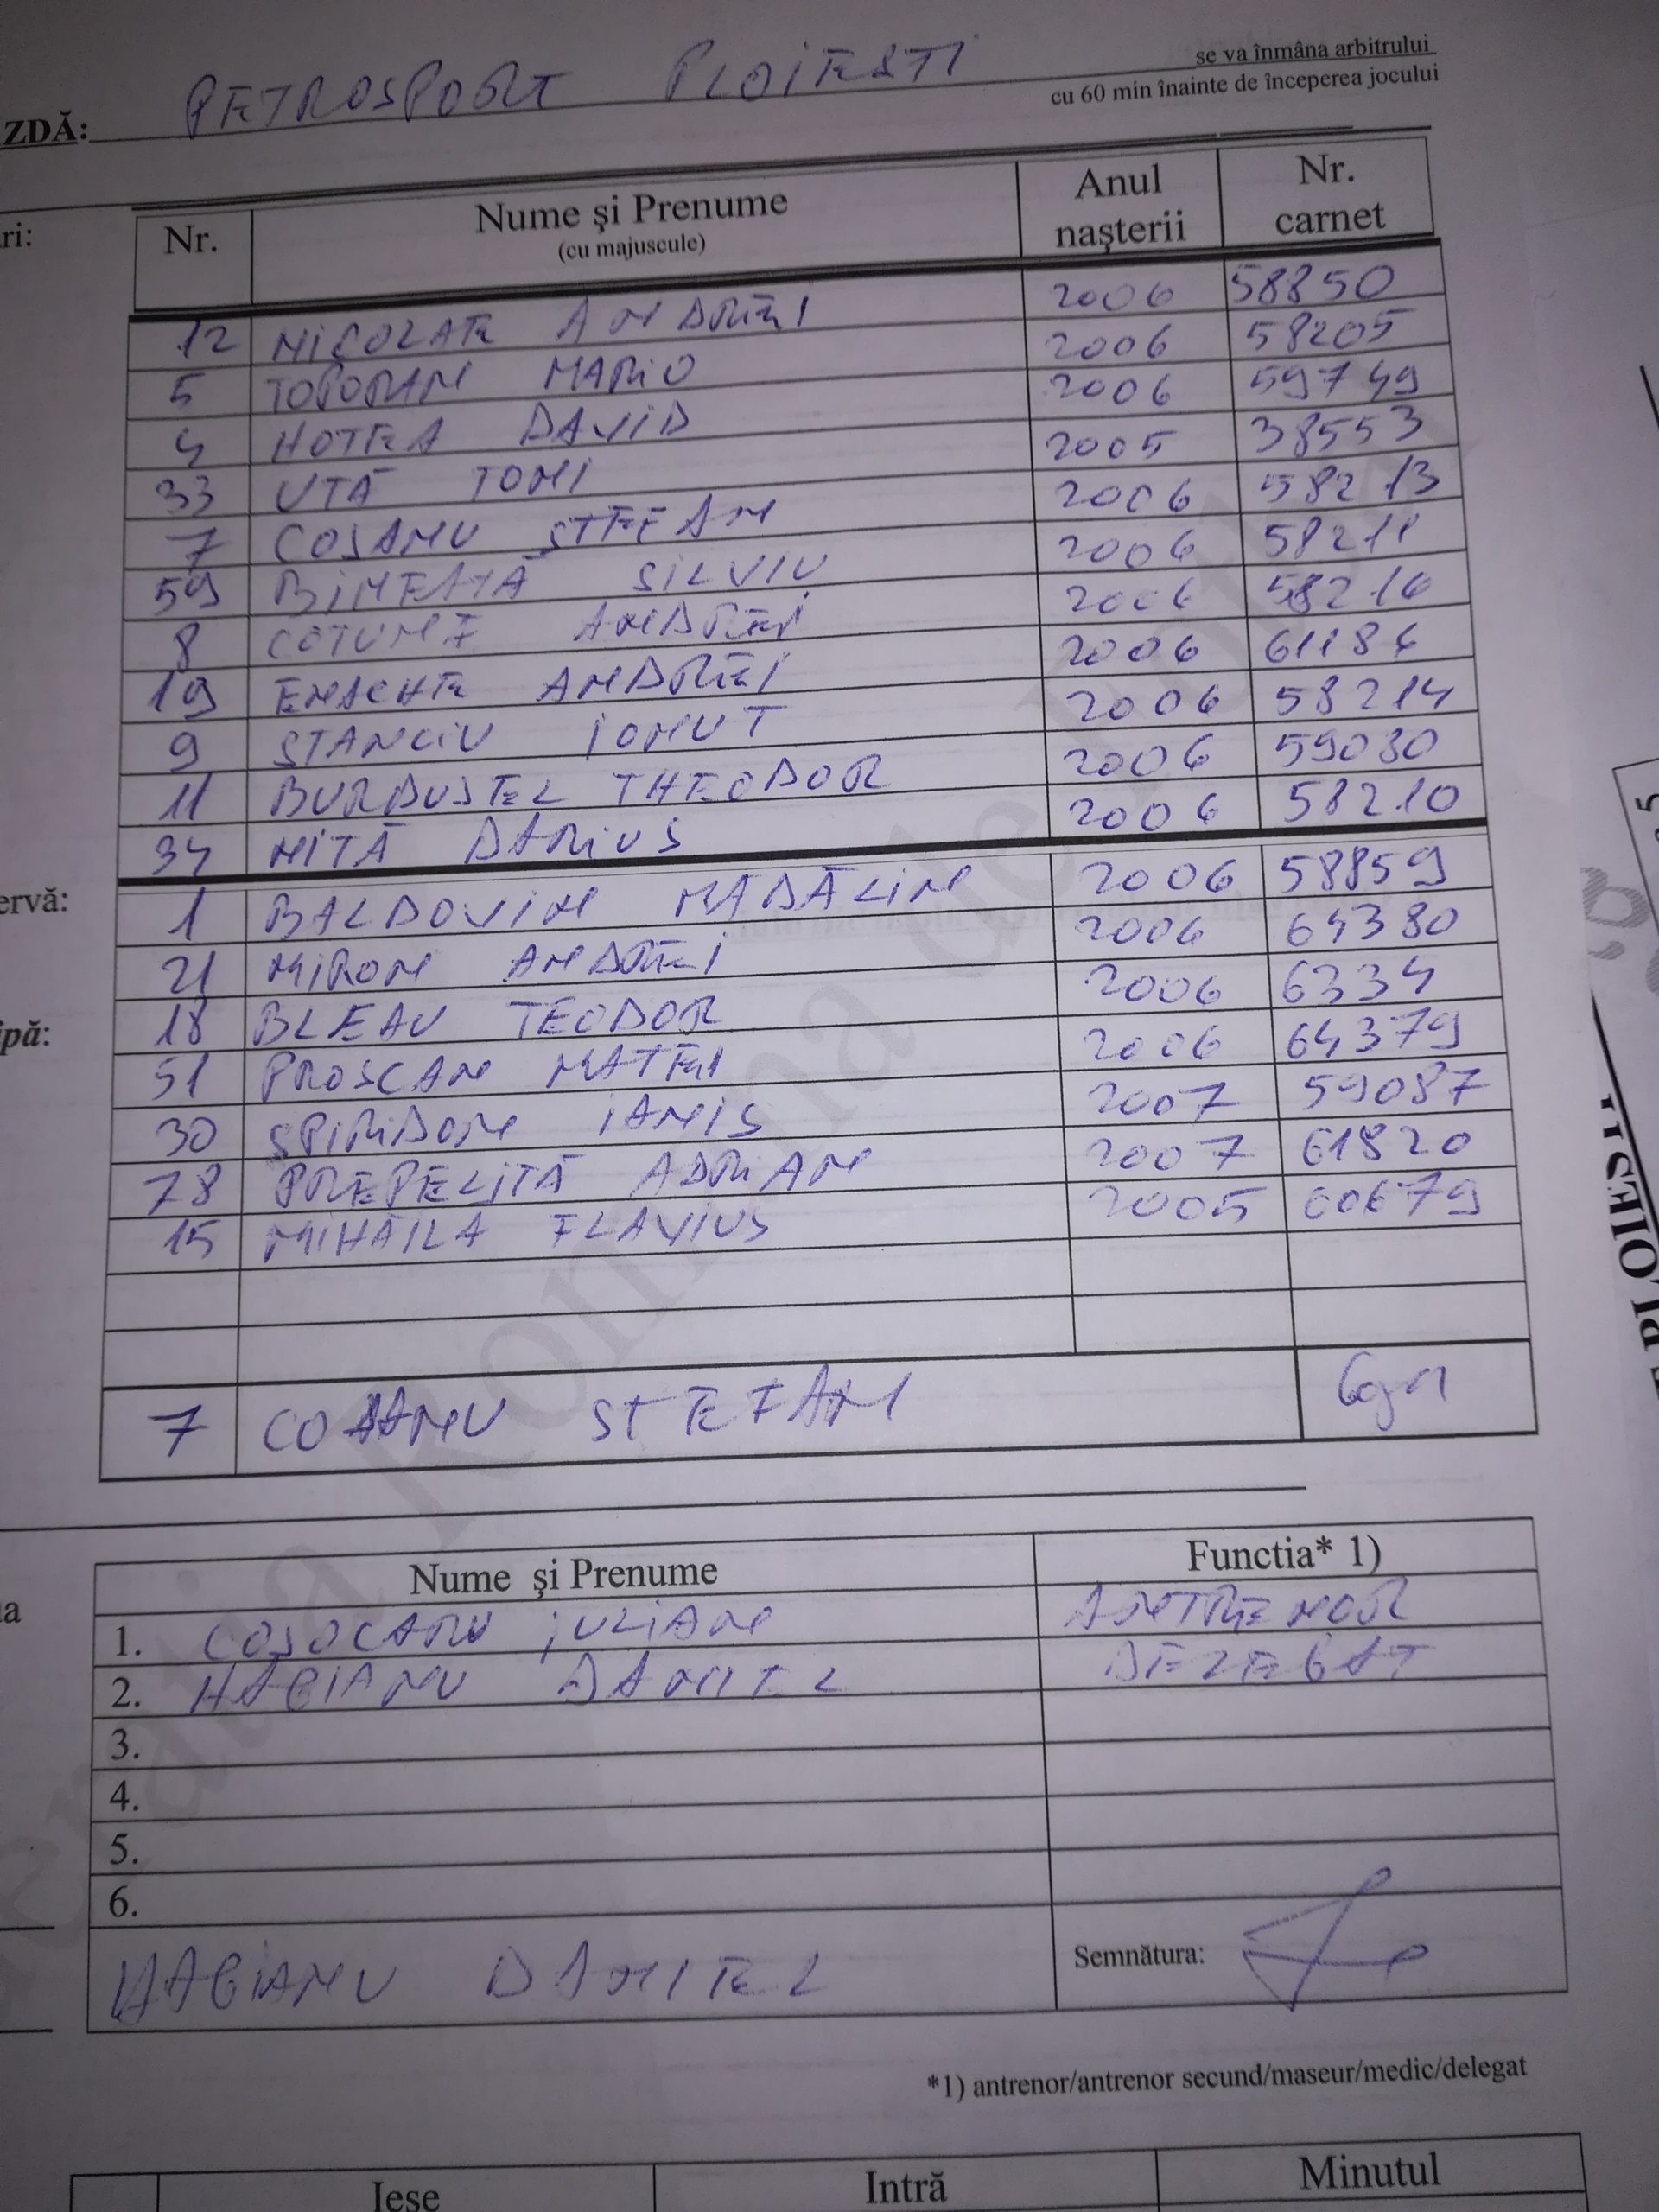 PETROSPORT PLOIESTI
se va înmâna arbitrului
ZDĂ:
cu 60 min înainte de începerea jocului
ri:
Nr. Nume şi Prenume Anul naşterii Nr. carnet
(cu majuscule)
12 NICOLAE ANDREI 2006 58850
5 TOPORAN MARIO 2006 58205
4 HOTEA DAVID 2006 59749
33 UTĂ TONI 2005 38553
7 COJANU STEFAN 2006 58213
59 SILVIU 2006 58211
8 ANDREI 2006 58216
19 ENACHE ANDREI 2006 61186
9 STANCIU IONUT 2006 58214
11 BURDUSEL THEODOR 2006 59030
34 NITĂ DARIUS 2006 58210
ervă:
1 BALDOVIN MĂDĂLIN 2006 58859
21 MIRON ANDREI 2006 64380
18 BLEAU TEODOR 2006 6334
ipă:
51 PROSCAN MATEI 2006 64379
30 SPIRIDON IANIS 2007 59087
78 PREPELITĂ ADRIAN 2007 61820
15 MIHĂILĂ FLAVIUS 2005 60679
7 COJANU STEFAN
Nume şi Prenume Functia* 1)
1. COJOCARU IULIAN ANTRENOR
2. HAGIANU DANIEL DELEGAT
3.
4.
5.
6.
HAGIANU DANIEL Semnătura:
*1) antrenor/antrenor secund/maseur/medic/delegat
Iese Intră Minutul